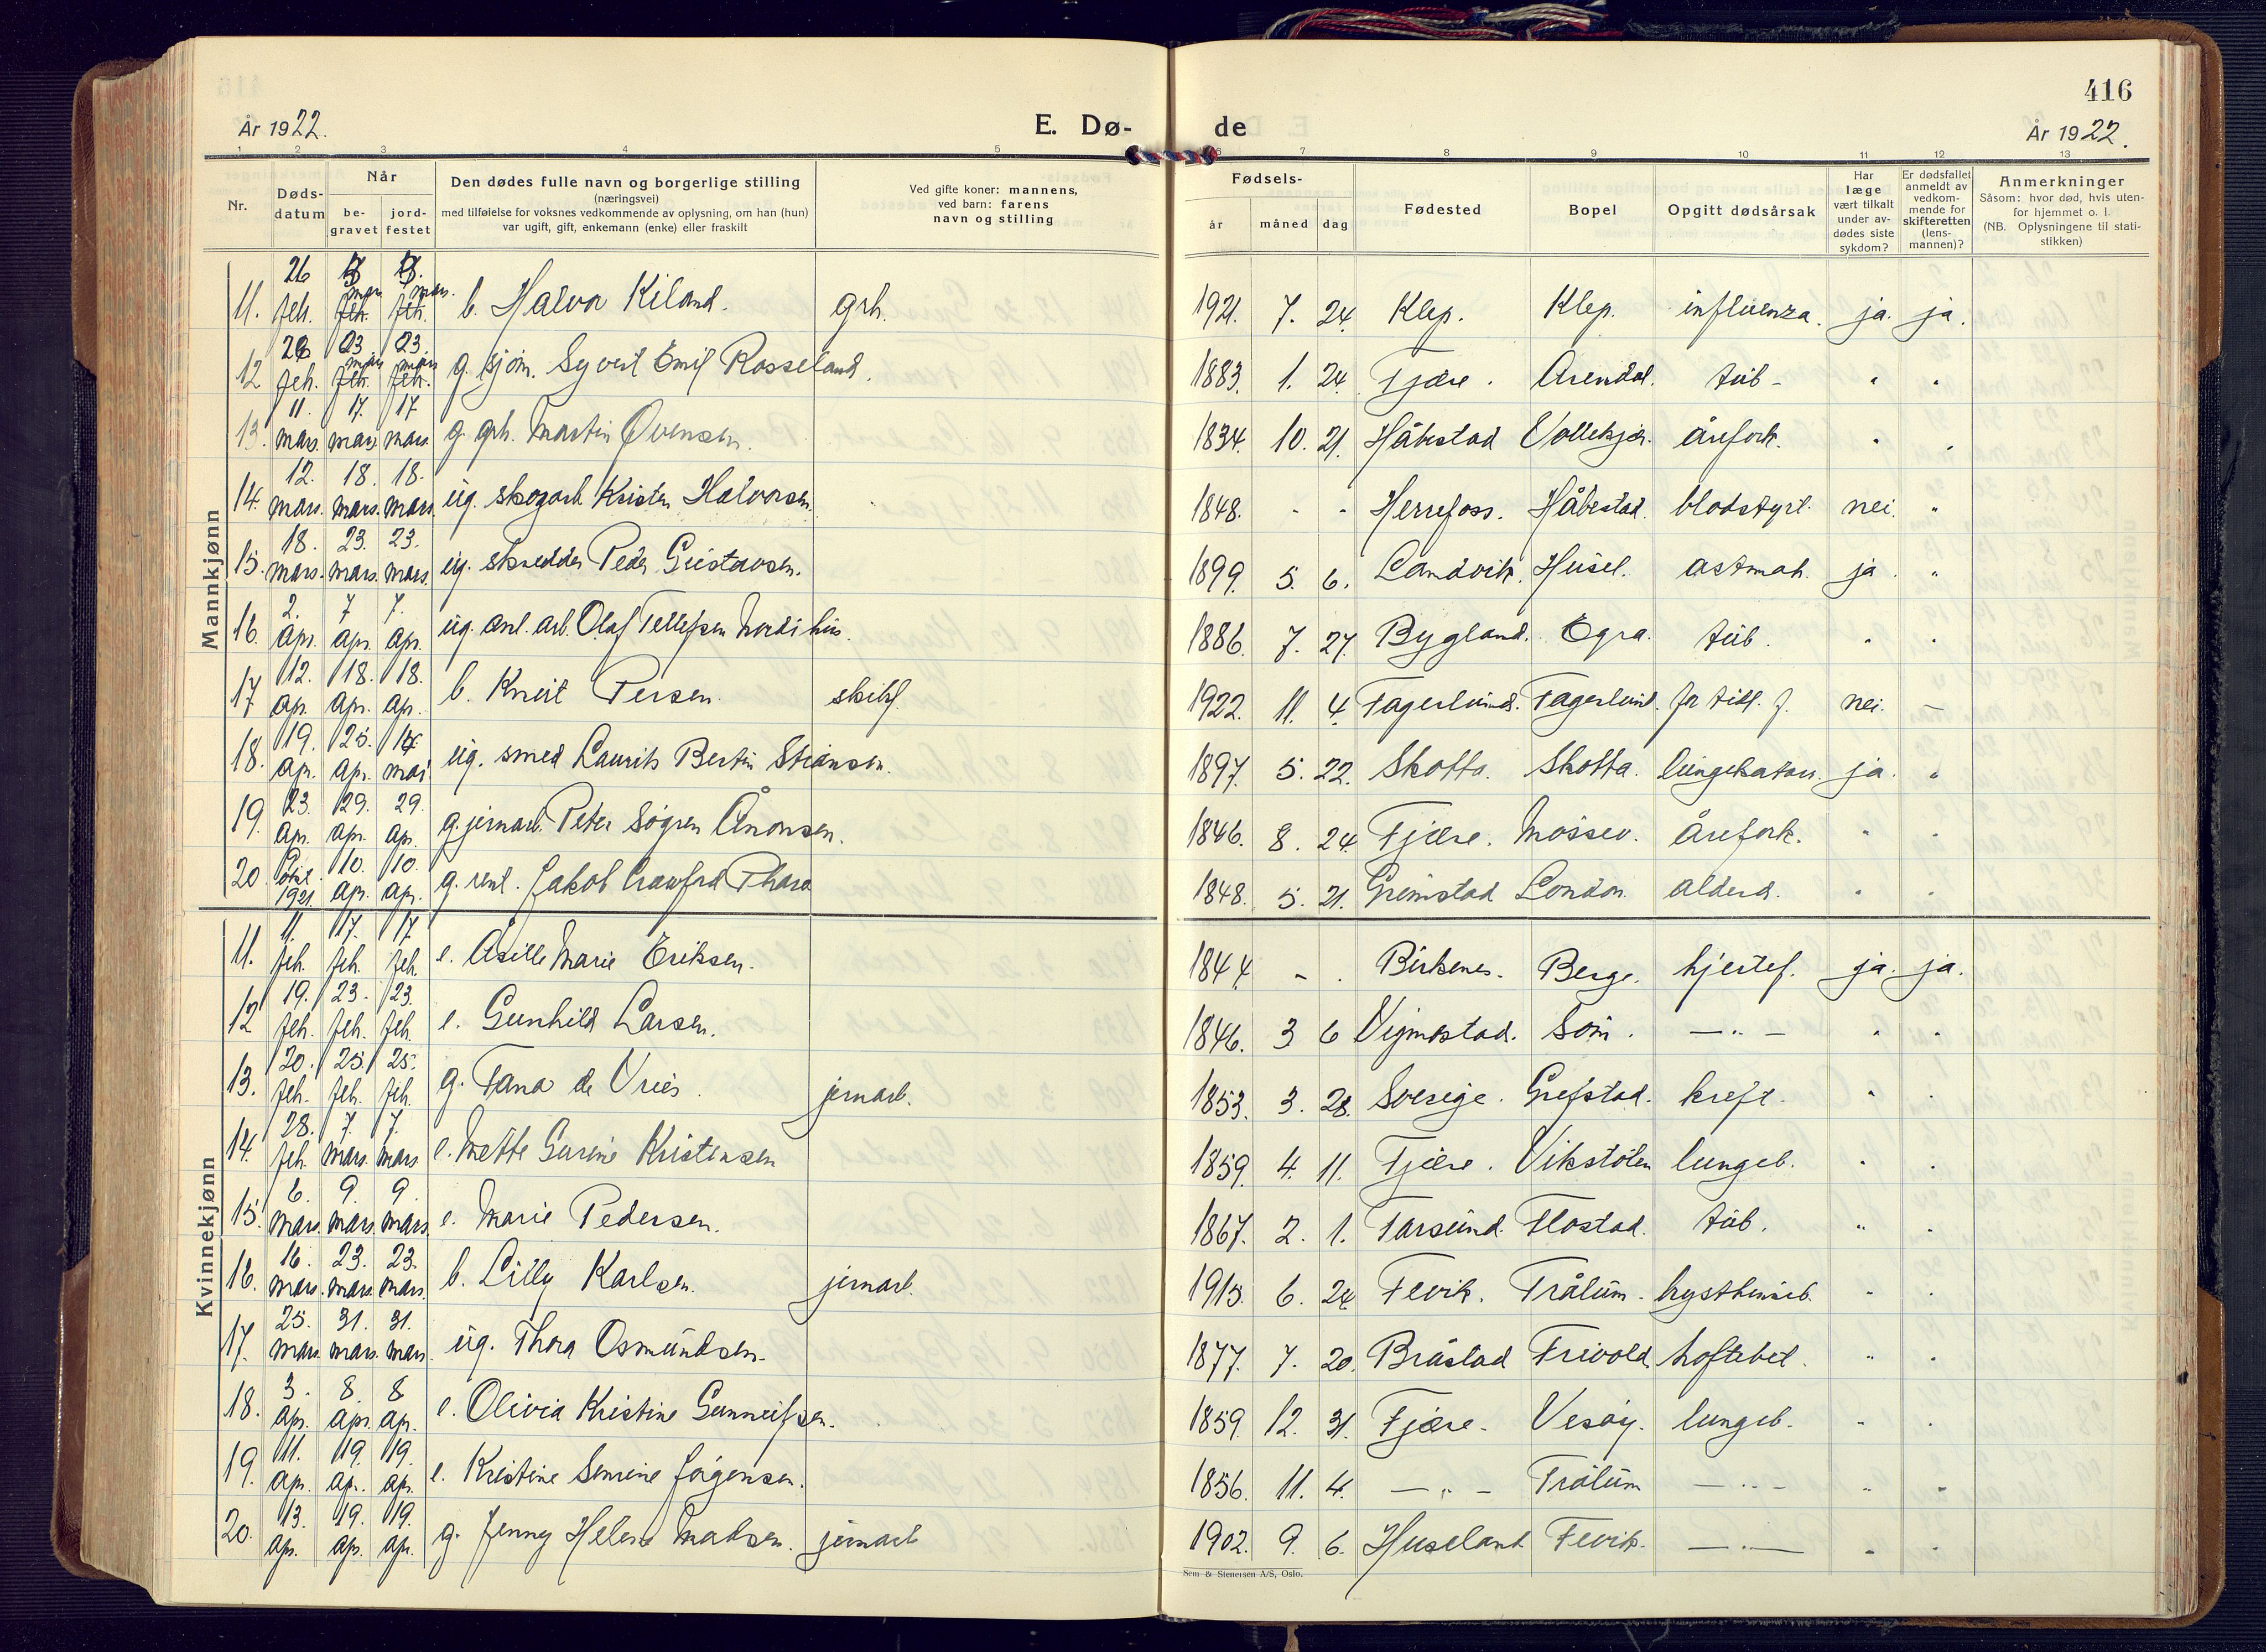 416
År 1922.
E. Dø-
de
År 1922.
1 2 3 4 5 6 7 8 9 10 11 12 13
Nr.
Døds-
datum
Når
be-
gravet
jord-
festet
Den dødes fulle navn og borgerlige stilling
(næringsvei)
med tilføielse for voksnes vedkommende av oplysning, om han (hun)
var ugift, gift, enkemann (enke) eller fraskilt
Ved gifte koner: mannens,
ved barn: farens
navn og stilling
Fødsels-
år måned dag
Fødested
Bopel
Opgitt dødsårsak
Har
læge
vært tilkalt
under av-
dødes siste
sykdom?
Er dødsfallet
anmeldt av
vedkom-
mende for
skifteretten
(lens-
mannen)?
Anmerkninger
Såsom: hvor død, hvis uten-
for hjemmet o. l.
(NB. Oplysningene til stati-
stikken)
Mannkjønn
11. 26 feb. mars mars b. Halvor Kiland. grb. 1921. 7. 24. Klep. Klep. influenza. ja. ja.
12 feb. 23 mars 23 mars g. sjøm. Syvert Emil Rosseland. 1883. 1. 24. Fjære. Arendal. tub - " "
13. 11. mars. 17. mars 17 mars. g. grb. Martin Ovensen. 1834. 10. 21. Håbstad Vollekjær. årefork. " "
14. 12. mars. 18. mars. 18. mars. ug. skogarb. Kristen Halvorsen. 1848. - - Herrefoss. Håbestad. blodstyrt. nei. "
15. 18. mars. 23. mars. 23. mars. ug. skredder Peder Gustavsen. 1899. 5. 6. Landvik. Husel. astmah. ja. "
16. 2. apr. 7 apr. 7. apr. ug. anl. arb. Olaf Tellefsen Nordihus. 1886. 7. 27. Bygland. Egra. tub. " "
17 12. apr. 18. apr. 18. apr. b. Knut Persen. skibf. 1922. 11. 4. Fagerlund. Fagerlund. for tidl. f. nei. -
18. 19. ap. 25. apr. mai ug. smed Laurits Bertin Stiansen. 1897. 5. 22. Skotta. Skotta. lungekatarr. ja. "
19. 23. apr. 29. apr. 29. ap. g. jernarb. Peter Søgren Ånonsen. 1846. 8. 24. Fjære. Mossev. årefork. " "
20. 9. okt. 1921. 10. apr. 10. apr. g. rent. Jakob Crawford Thara 1848. 5. 21. Grimstad London. alderd. " "
Kvinnekjønn
11. 11. feb. 17. feb. 17. feb. e. Åsille Marie Eriksen. 1844 - . Birkenes. Berge. hjertef. ja. ja.
12 19. feb. 23. feb. 23. feb. e. Gunhild Larsen. 1846. 3 6 Vigmostad. Søm. - " - " "
13. 20. feb. 25. feb. 25. feb. g. Tana de Vries. jernarb. 1853. 3. 28. Sverige. Grefstad. kreft. " "
14. 28. feb. 7. mars. 7. mars e. Mette Gurine Kristensen 1859. 4. 11. Fjære. Vikstølen lungeb. " "
15. 6. mars. 9. mars. 9. mars. e. Marie Pedersen. 1867. 2. 1. Farsund. Flostad. tub. " "
16. 16. mars. 23. mars. 23. mars. b. Lilly Karlsen. jernarb. 1915. 6. 24. Fevik. Trålum. brysthinneb. " "
17. 25. mars. 31. mars. 31. mars. ug. Thora Osmundsen. 1877. 7. 20. Bråstad Frivold. hoftebet. " "
18. 3. apr. 8. apr. 8 ap. e. Olivia Kristine Gunnufsen. 1859. 12. 31. Fjære. Vesøy. lungeb. - "
19. 11. ap. 19. ap. 19. ap. e. Kristine Semine Jørgensen. 1856. 11. 4. - " - Trålum - " - " "
20. 13. ap. 19. ap. 19. ap. g. Jenny Helene Madsen. jernarb 1902. 9. 6. Huseland Fevik. - " - " "
Sem & Stenersen A/S, Oslo.